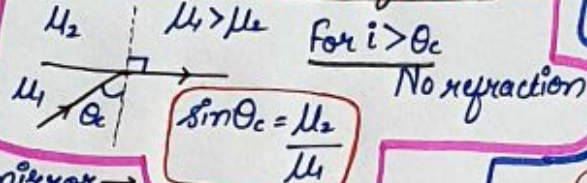 μ₂ μ₁>μ₂ For i>θc
No refraction
μ₁ θc sinθc = μ₂/μ₁
mirror →